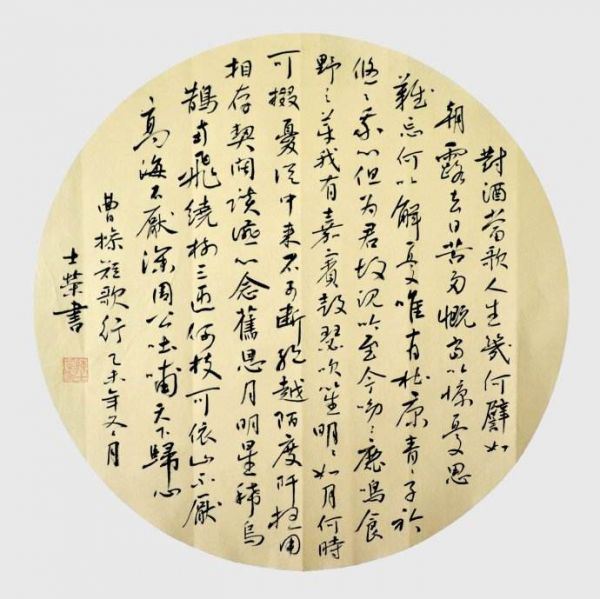 對酒當歌人生幾何譬如
朝露去日苦多慨當以慷憂思
難忘何以解憂唯有杜康青々子衿
悠々我心但為君故沉吟至今呦々鹿鳴食
野之苹我有嘉賓鼓瑟吹笙明々如月何時
可掇憂從中來不可斷絕越陌度阡枉用
相存契闊談讌心念舊恩月明星稀烏
鵲南飛繞樹三匝何枝可依山不厭
高海不厭深周公吐哺天下歸心
曹操短歌行乙未年冬月
士榮書